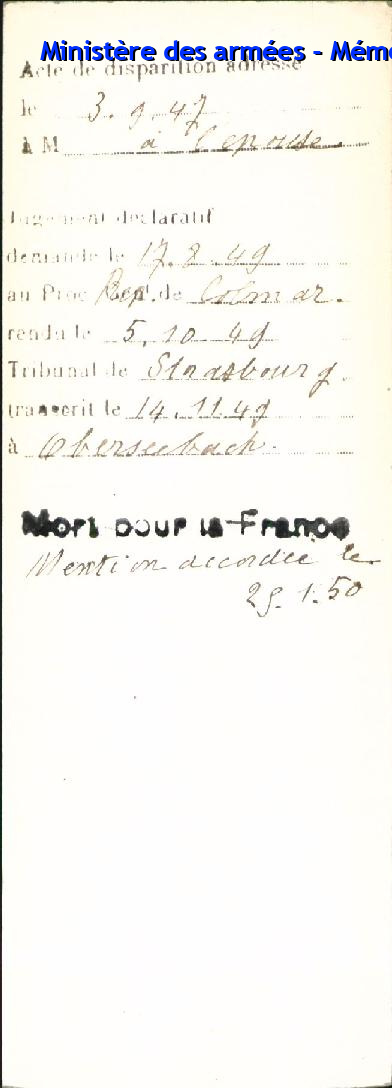 Ministère des armées - Mémo
Acte de disparition adressé
le 3.9.47
à M à l'epouse.
Jugement déclaratif
demandé le 17.8.49
au Proc Rép. de Colmar.
rendu le 5.10 49
Tribunal de Strasbourg.
transcrit le 14.11.49
à Oberseebach.
Mort pour la France
Mention accordée le
25.1.50